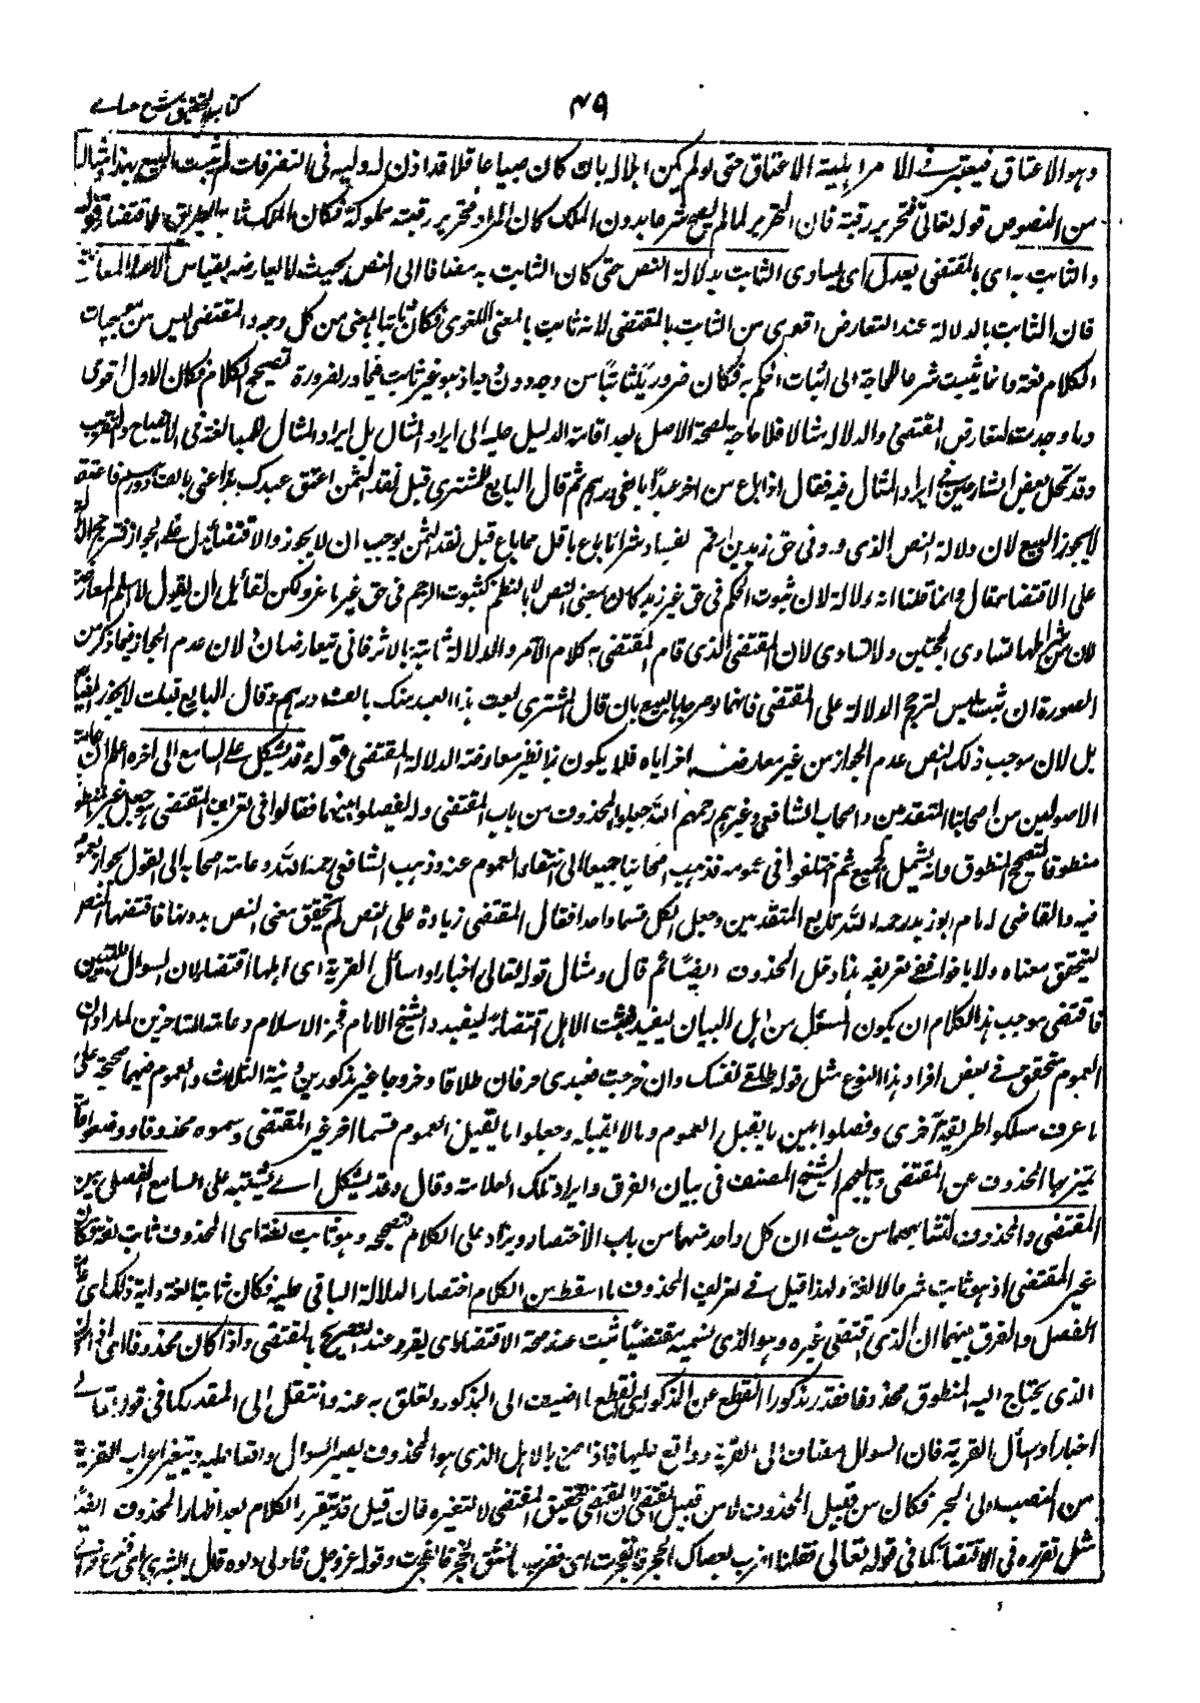 ٤٩
كتاب التحقيق شرح حسامي
وهو الاعتاق فيعتبر في الامر اهلية الاعتاق حتى لو لم يكن اهلا له بان كان صبيا عاقلا قد اذن له وليه في التصرفات لم يثبت البيع بهذا
من النصوص قوله تعالى فتحرير رقبة فان التحرير لما لم يصح شرعا بدون الملك كان المراد فتحرير رقبة مملوكة فكان الملك ثابتا بطريق الاقتضاء قوله
والثابت به اى بالمقتضى يعدل اى يساوى الثابت بدلالة النص حتى كان الثابت به مضافا الى النص بحيث لا يعارضه القياس الا عند المعارضة
فان الثابت بالدلالة عند التعارض اقوى من الثابت بالمقتضى لانه ثابت بالمعنى اللغوى فكان ثابتا بالمعنى من كل وجه والمقتضى ليس من موجبات
الكلام لغة وانما يثبت شرعا للحاجة الى اثبات الحكم به فكان ضروريا ثابتا من وجه دون وجه اذ هو غير ثابت فيما وراء ضرورة تصحيح الكلام فكان الاول اقوى
وما وجدت لتعارض المقتضى والدلالة مثالا فلا حاجة لصحة الاصل بعد اقامة الدليل عليه الى ايراد المثال بل ايراد المثال للمبالغة في الايضاح والتقريب
وقد تمحل بعض الشارحين في ايراد المثال فيه فقال اذا باع من اخر عبدا بالفى درهم ثم قال البايع للمشترى قبل نقد الثمن اعتق عبدك هذا عنى بالف درهم فاعتقه
لا يجوز البيع لان دلالة النص الذى ورد في حق زيد بن ارقم بفساد شراء ما باع باقل مما باع قبل نقد الثمن يوجب ان لا يجوز والاقتضاء يدل على الجواز فترجح
على الاقتضاء قال وانما قلنا انه دلالة لان ثبوت الحكم في حق غير زيد كان بمعنى النص لا بالنظم كثبوت الرجم في حق غير ماعز ولكن لقائل ان يقول لا نسلم المعارضة
لان من شرطها تساوى الحجتين ولا تساوى لان المقتضى الذى قام المقتضى به كلام الامر والدلالة ثابتة بالاثر فانى يتعارضان ولان عدم الجواز فيما ذكر من
الصورة ان ثبت ليس لترجح الدلالة على المقتضى فانهما لو صرحا بالبيع بان قال المشترى بعت هذا العبد منك بالف درهم وقال البايع قبلت لا يجوز ايضا
بل لان موجب ذلك النص عدم الجواز من غير معارضة اخر اياه فلا يكون هذا نظير معارضة الدلالة المقتضى قوله وقد يشكل على السامع الى اخره اعلم ان عامة
الاصوليين من اصحابنا المتقدمين واصحاب الشافعى وغيرهم رحمهم الله جعلوا المحذوف من باب المقتضى ولم يفصلوا بينهما فقالوا في تعريف المقتضى هو جعل غير المنطوق
منطوقا لتصحيح المنطوق وانه يشمل الجميع ثم اختلفوا في عمومه فذهب اصحابنا جميعا الى انتفاء العموم عنه وذهب الشافعى رحمه الله وعامة اصحابه الى القول بجواز العموم
فيه والقاضى الامام ابو زيد رحمه الله تابع المتقدمين وجعل الكل قسما واحدا فقال المقتضى زيادة على النص لم يتحقق معنى النص بدونها فاقتضاها النص
ليتحقق معناه ولا يلغو ففى تعريفه هذا دخل المحذوف ايضا ثم قال ومثال قوله تعالى اخبارا واسأل القرية اى اهلها اقتضاء لان السؤال للتبيين
فاقتضى موجب هذا الكلام ان يكون المسئول من اهل البيان ليفيد فثبت الاهل اقتضاء ليفيد والشيخ الامام فخر الاسلام وعامة المتاخرين لما راوا ان
العموم متحقق في بعض افراد هذا النوع مثل قوله طلقى نفسك وان خرجت فعبدى حر فان طلاقا وخروجا غير مذكورين ونية الثلاث والعموم فيهما صحيحة على
ما عرف سلكوا طريقة اخرى وفصلوا بين ما يقبل العموم وما لا يقبله وجعلوا ما يقبل العموم قسما اخر غير المقتضى وسموه محذوفا ووضعوا علامة
يتميز بها المحذوف عن المقتضى وتابعهم الشيخ المصنف في بيان الفرق وايراد تلك العلامة وقال وقد يشكل اى يشتبه على السامع الفصل بين
المقتضى والمحذوف لتشابههما من حيث ان كل واحد منهما من باب الاختصار ويزاد على الكلام لتصحيحه وهو ثابت لغة اى المحذوف ثابت لغة فكان
غير المقتضى اذ هو ثابت شرعا لا لغة ولهذا قيل في تعريف المحذوف ما اسقط من الكلام اختصارا لدلالة الباقى عليه فكان ثابتا لغة واية ذلك اى
الفصل والفرق بينهما ان الذى اقتضى غيره وهو الذى نسميه مقتضيا ثبت عند صحة الاقتضاء اى يقرر عند التصريح بالمقتضى واذا كان محذوفا
الذى يحتاج اليه المنطوق محذوفا فقدر مذكورا انقطع عن المذكور اى انقطع ما اضيف الى المذكور وتعلق به عنه وانتقل الى المقدر كما في قوله تعالى
اخبارا واسأل القرية فان السؤال مضاف الى القرية وواقع عليها فاذا صرح بالاهل الذى هو المحذوف يصير السؤال واقعا عليه ويتغير اعراب القرية
من النصب الى الجر فكان من قبيل المحذوف لا من قبيل المقتضى لان المقتضى لتحقيق المقتضى لا لتغيره فان قيل قد يتقرر الكلام بعد اظهار المحذوف ايضا
مثل تقرره في الاقتضاء كما في قوله تعالى فقلنا اضرب بعصاك الحجر فانفجرت اى فضربه فانشق الحجر فانفجرت وقوله عز وجل فادلى دلوه قال يا بشرى اى فنزع